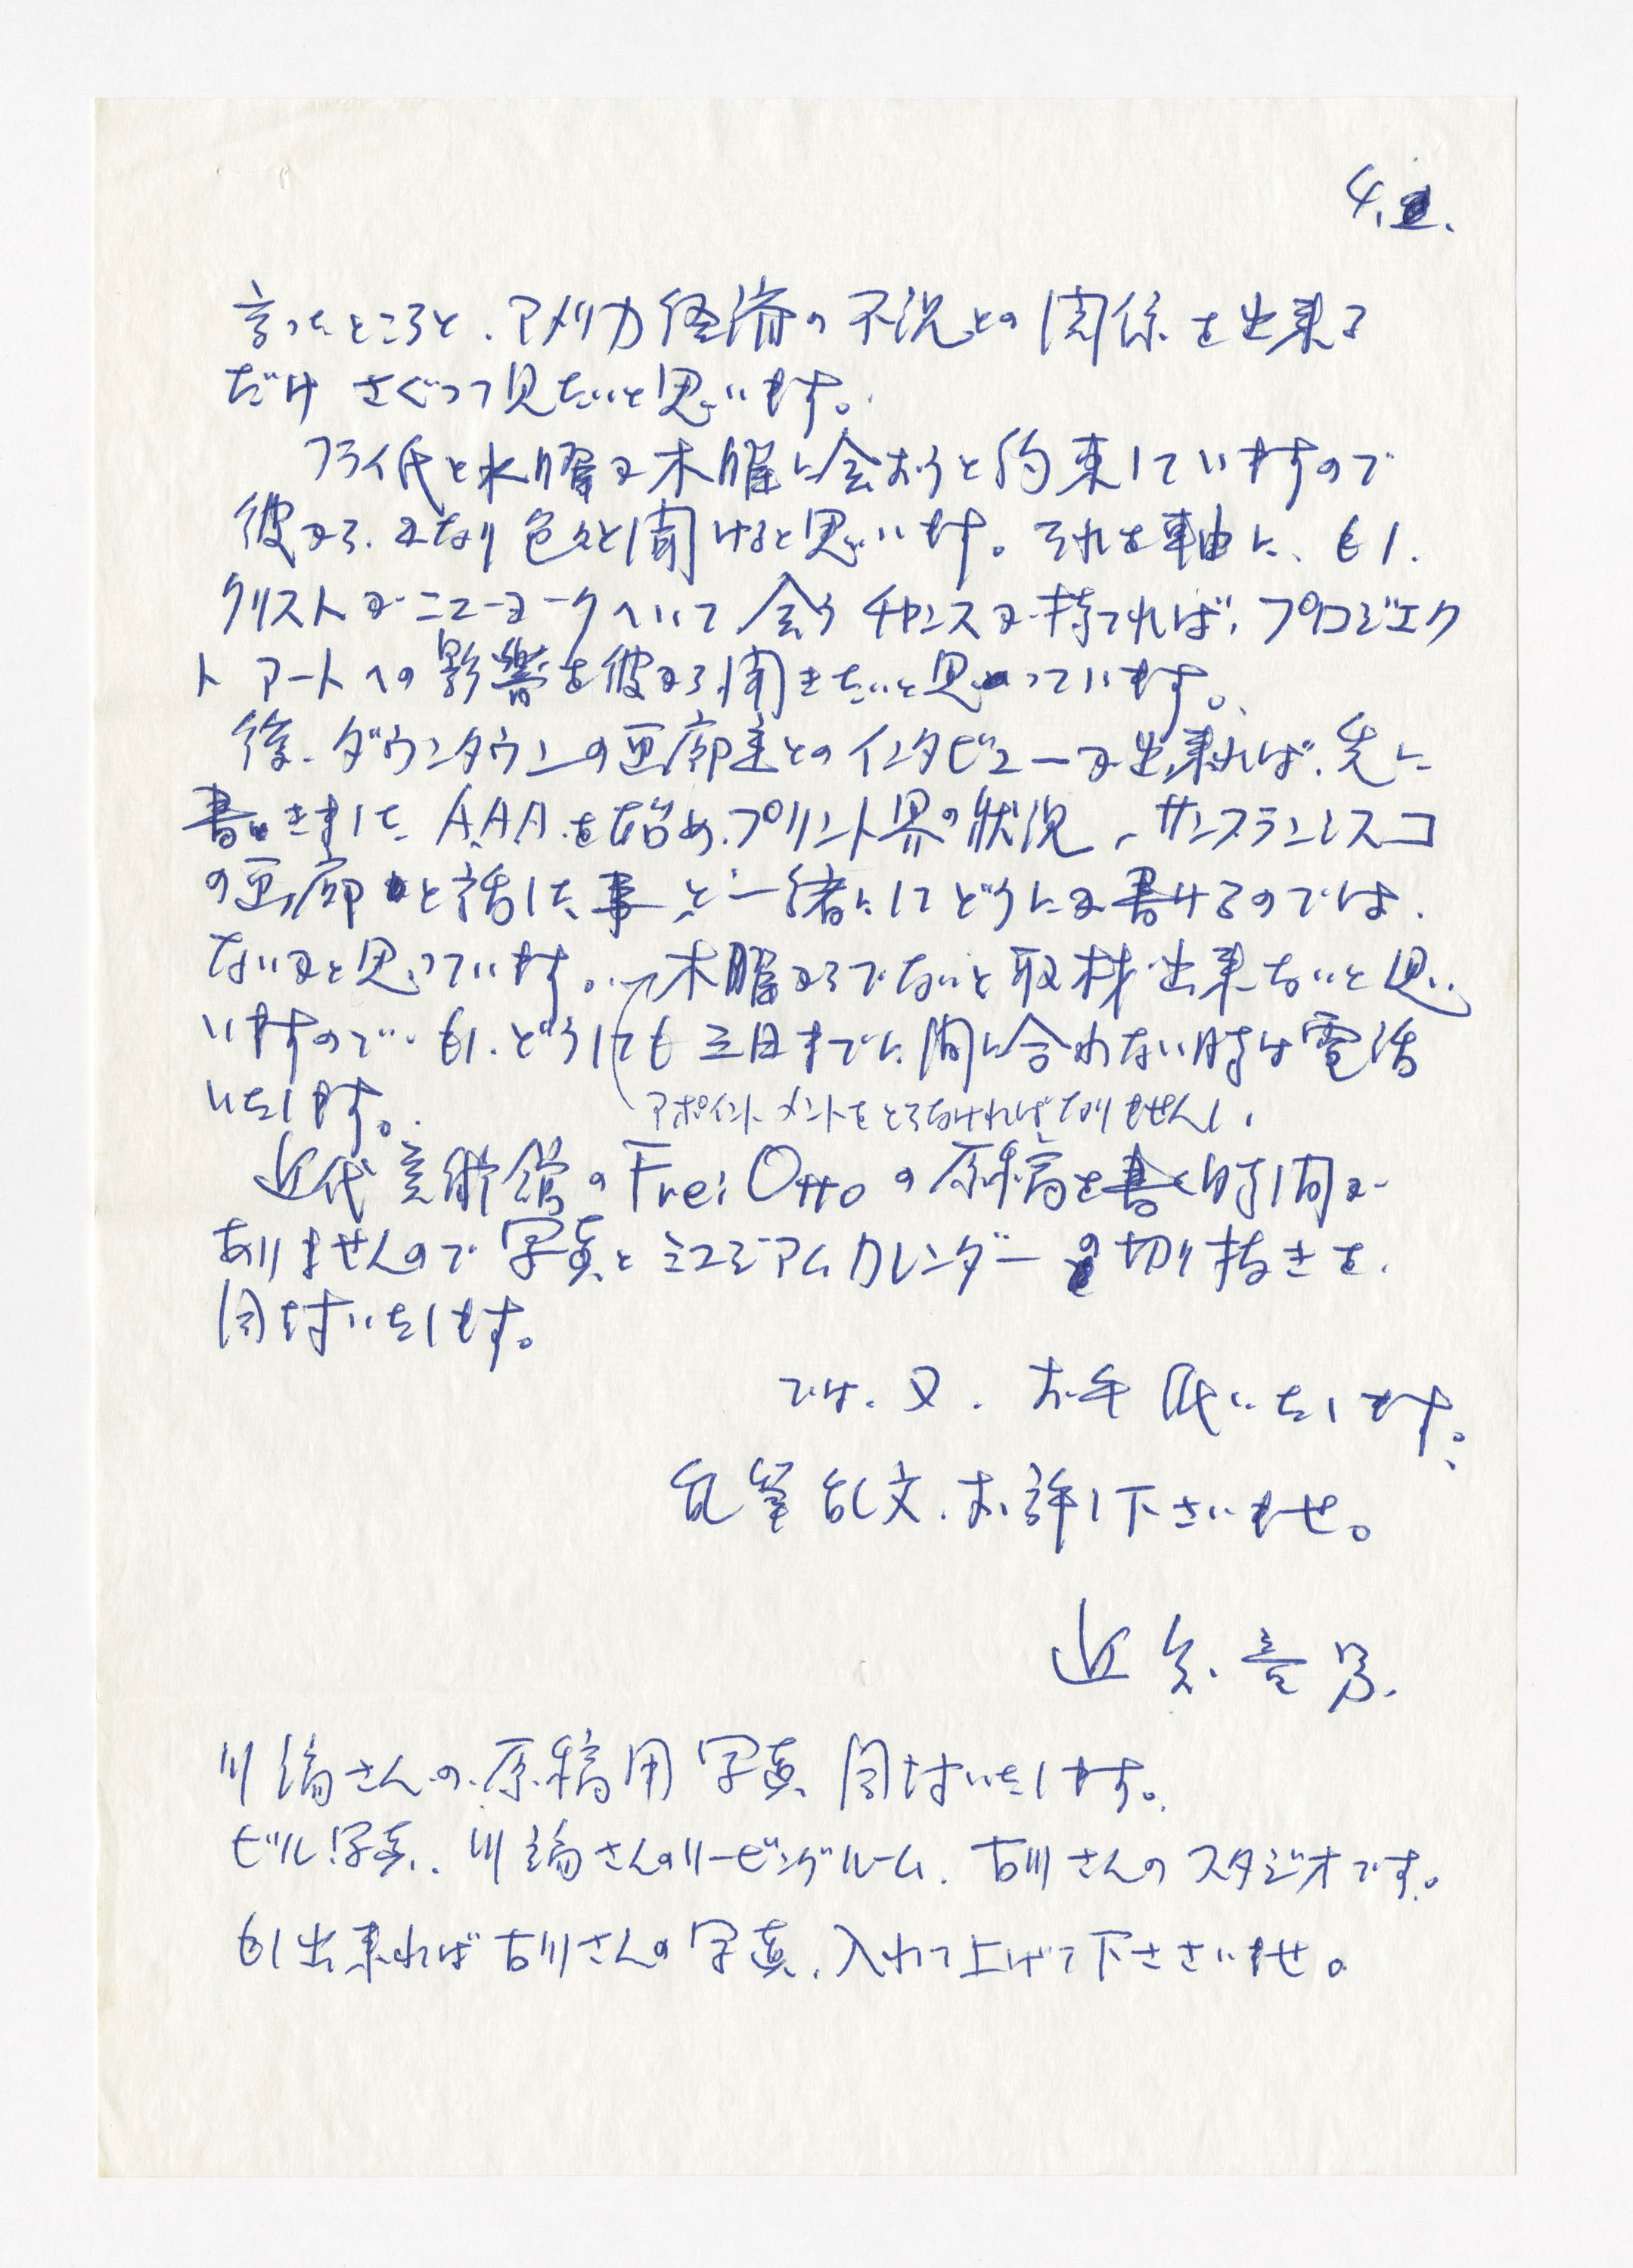 4.
言ったところと、アメリカ経済の不況との関係を出来る
だけ さぐって見たいと思います。
フライ氏と水曜か木曜に会おうと約束していますので
彼から、かなり色々と聞けると思います。それを軸に、もし、
クリストがニューヨークへいて会うチャンスが持てれば、プロジェク
ト アートへの影響を彼から聞きたいと思っています。
後、ダウンタウンの画廊主とのインタビューが出来れば、先に
書きました A.A.A.を始め、プリント界の状況、サンフランシスコ
の画廊と話した事と一緒にしてどうにか書けるのでは、
ないかと思っています。木曜からでないと取材出来ないと思
いますので、もし、どうしても三日までに間に合わない時は電話
いたします。
アポイントメントをとらなければなりませんし、
近代美術館の Frei Otto の原稿を書く時間が
ありませんので写真とミュージアムカレンダーの切り抜きを、
同封いたします。
では、又、お手紙いたします。
乱筆乱文、お許し下さいませ。
近 男
川島さんの原稿用写真、同封いたします。
ビル写真、川島さんのリービングルーム、古川さんのスタジオです。
もし出来れば古川さんの写真、入れて上げて下ささいませ。